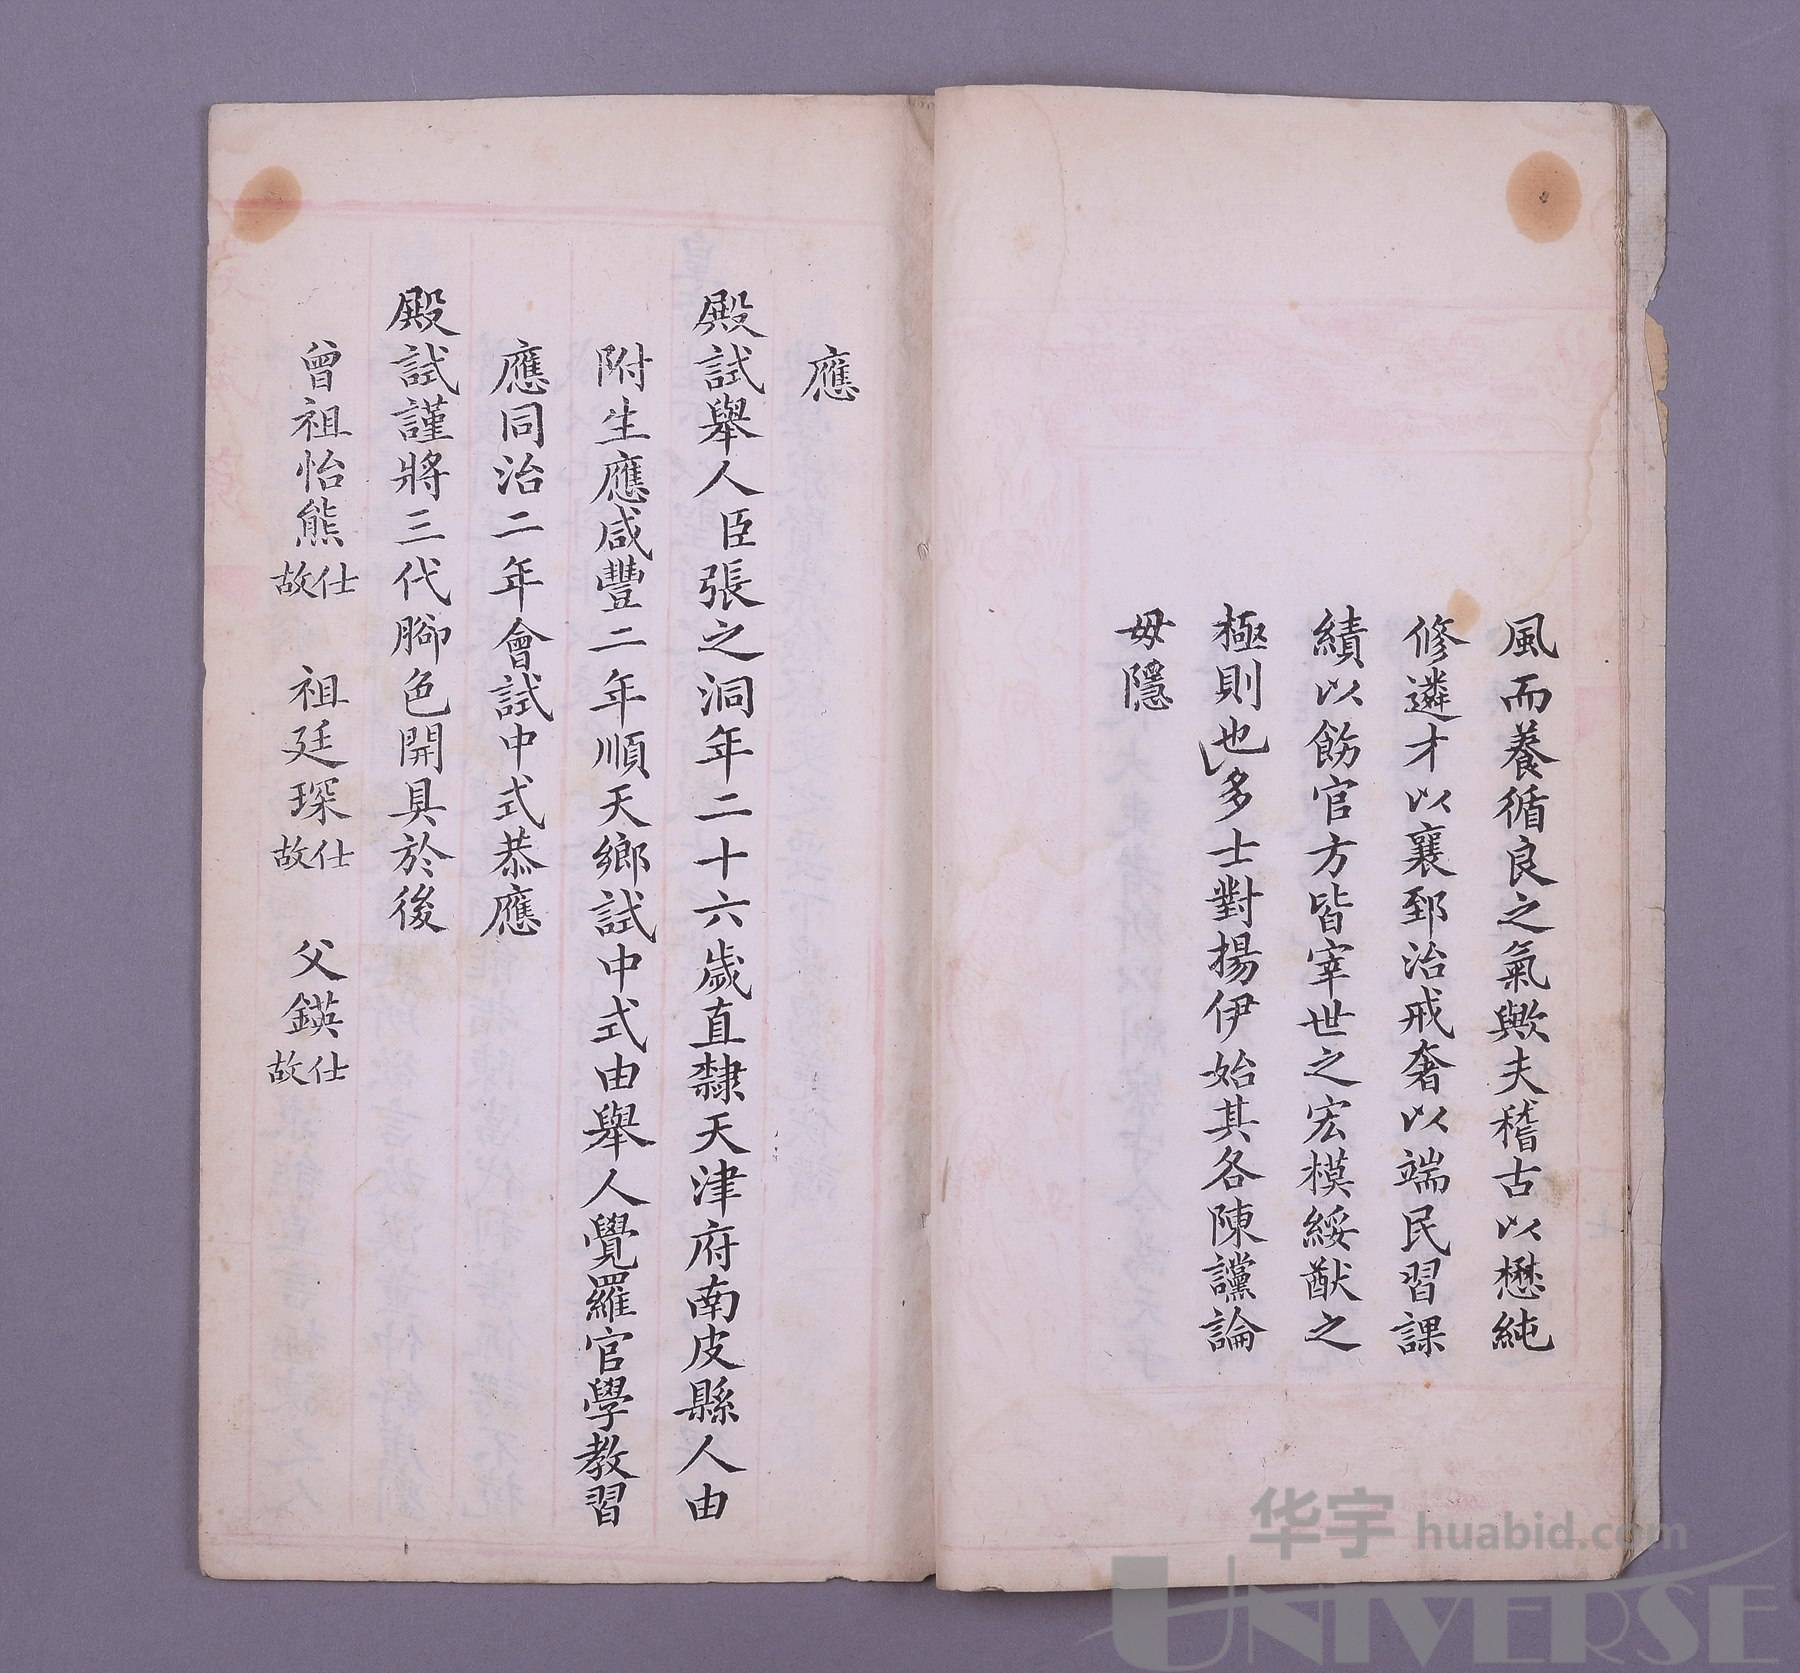 風而養循良之氣歟夫稽古以懋純
修遴才以襄郅治戒奢以端民習課
績以飭官方皆宰世之宏模綏猷之
極則也多士對揚伊始其各陳讜論
毋隱
應
殿試舉人臣張之洞年二十六歲直隸天津府南皮縣人由
附生應咸豐二年順天鄉試中式由舉人覺羅官學教習
應同治二年會試中式恭應
殿試謹將三代腳色開具於後
曾祖怡熊仕故 祖廷琛仕故 父鍈仕故
华宇 huabid.com
UNIVERSE